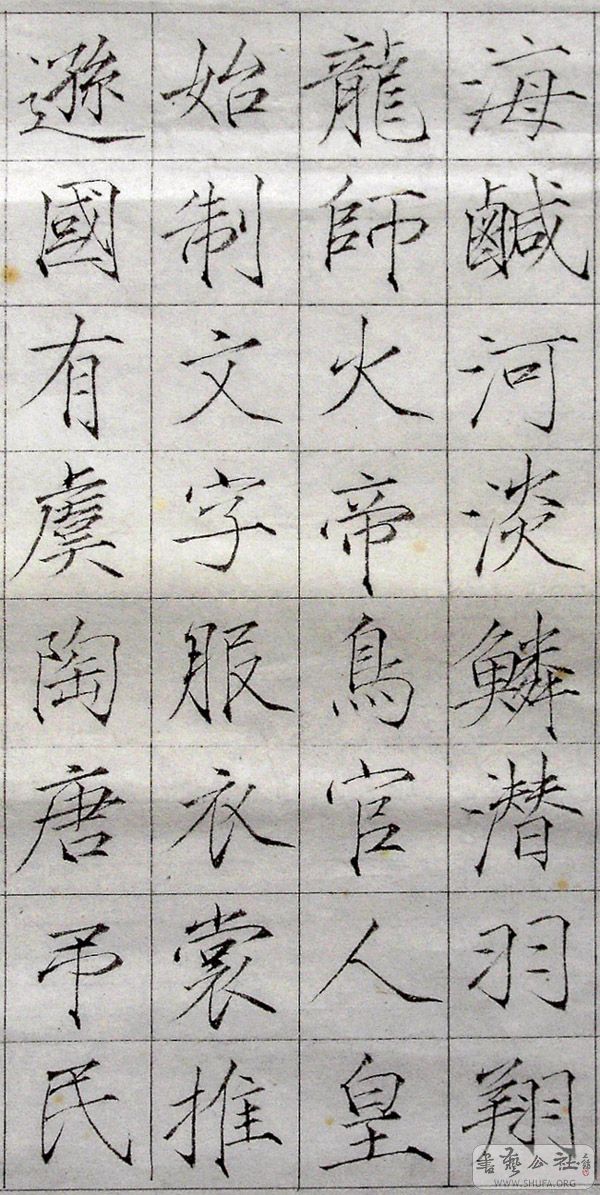 海鹹河淡鱗潜羽翔
龍師火帝鳥官人皇
始制文字服衣裳推
遜國有虞陶唐弔民
書藝公社
WWW.SHUFA.ORG